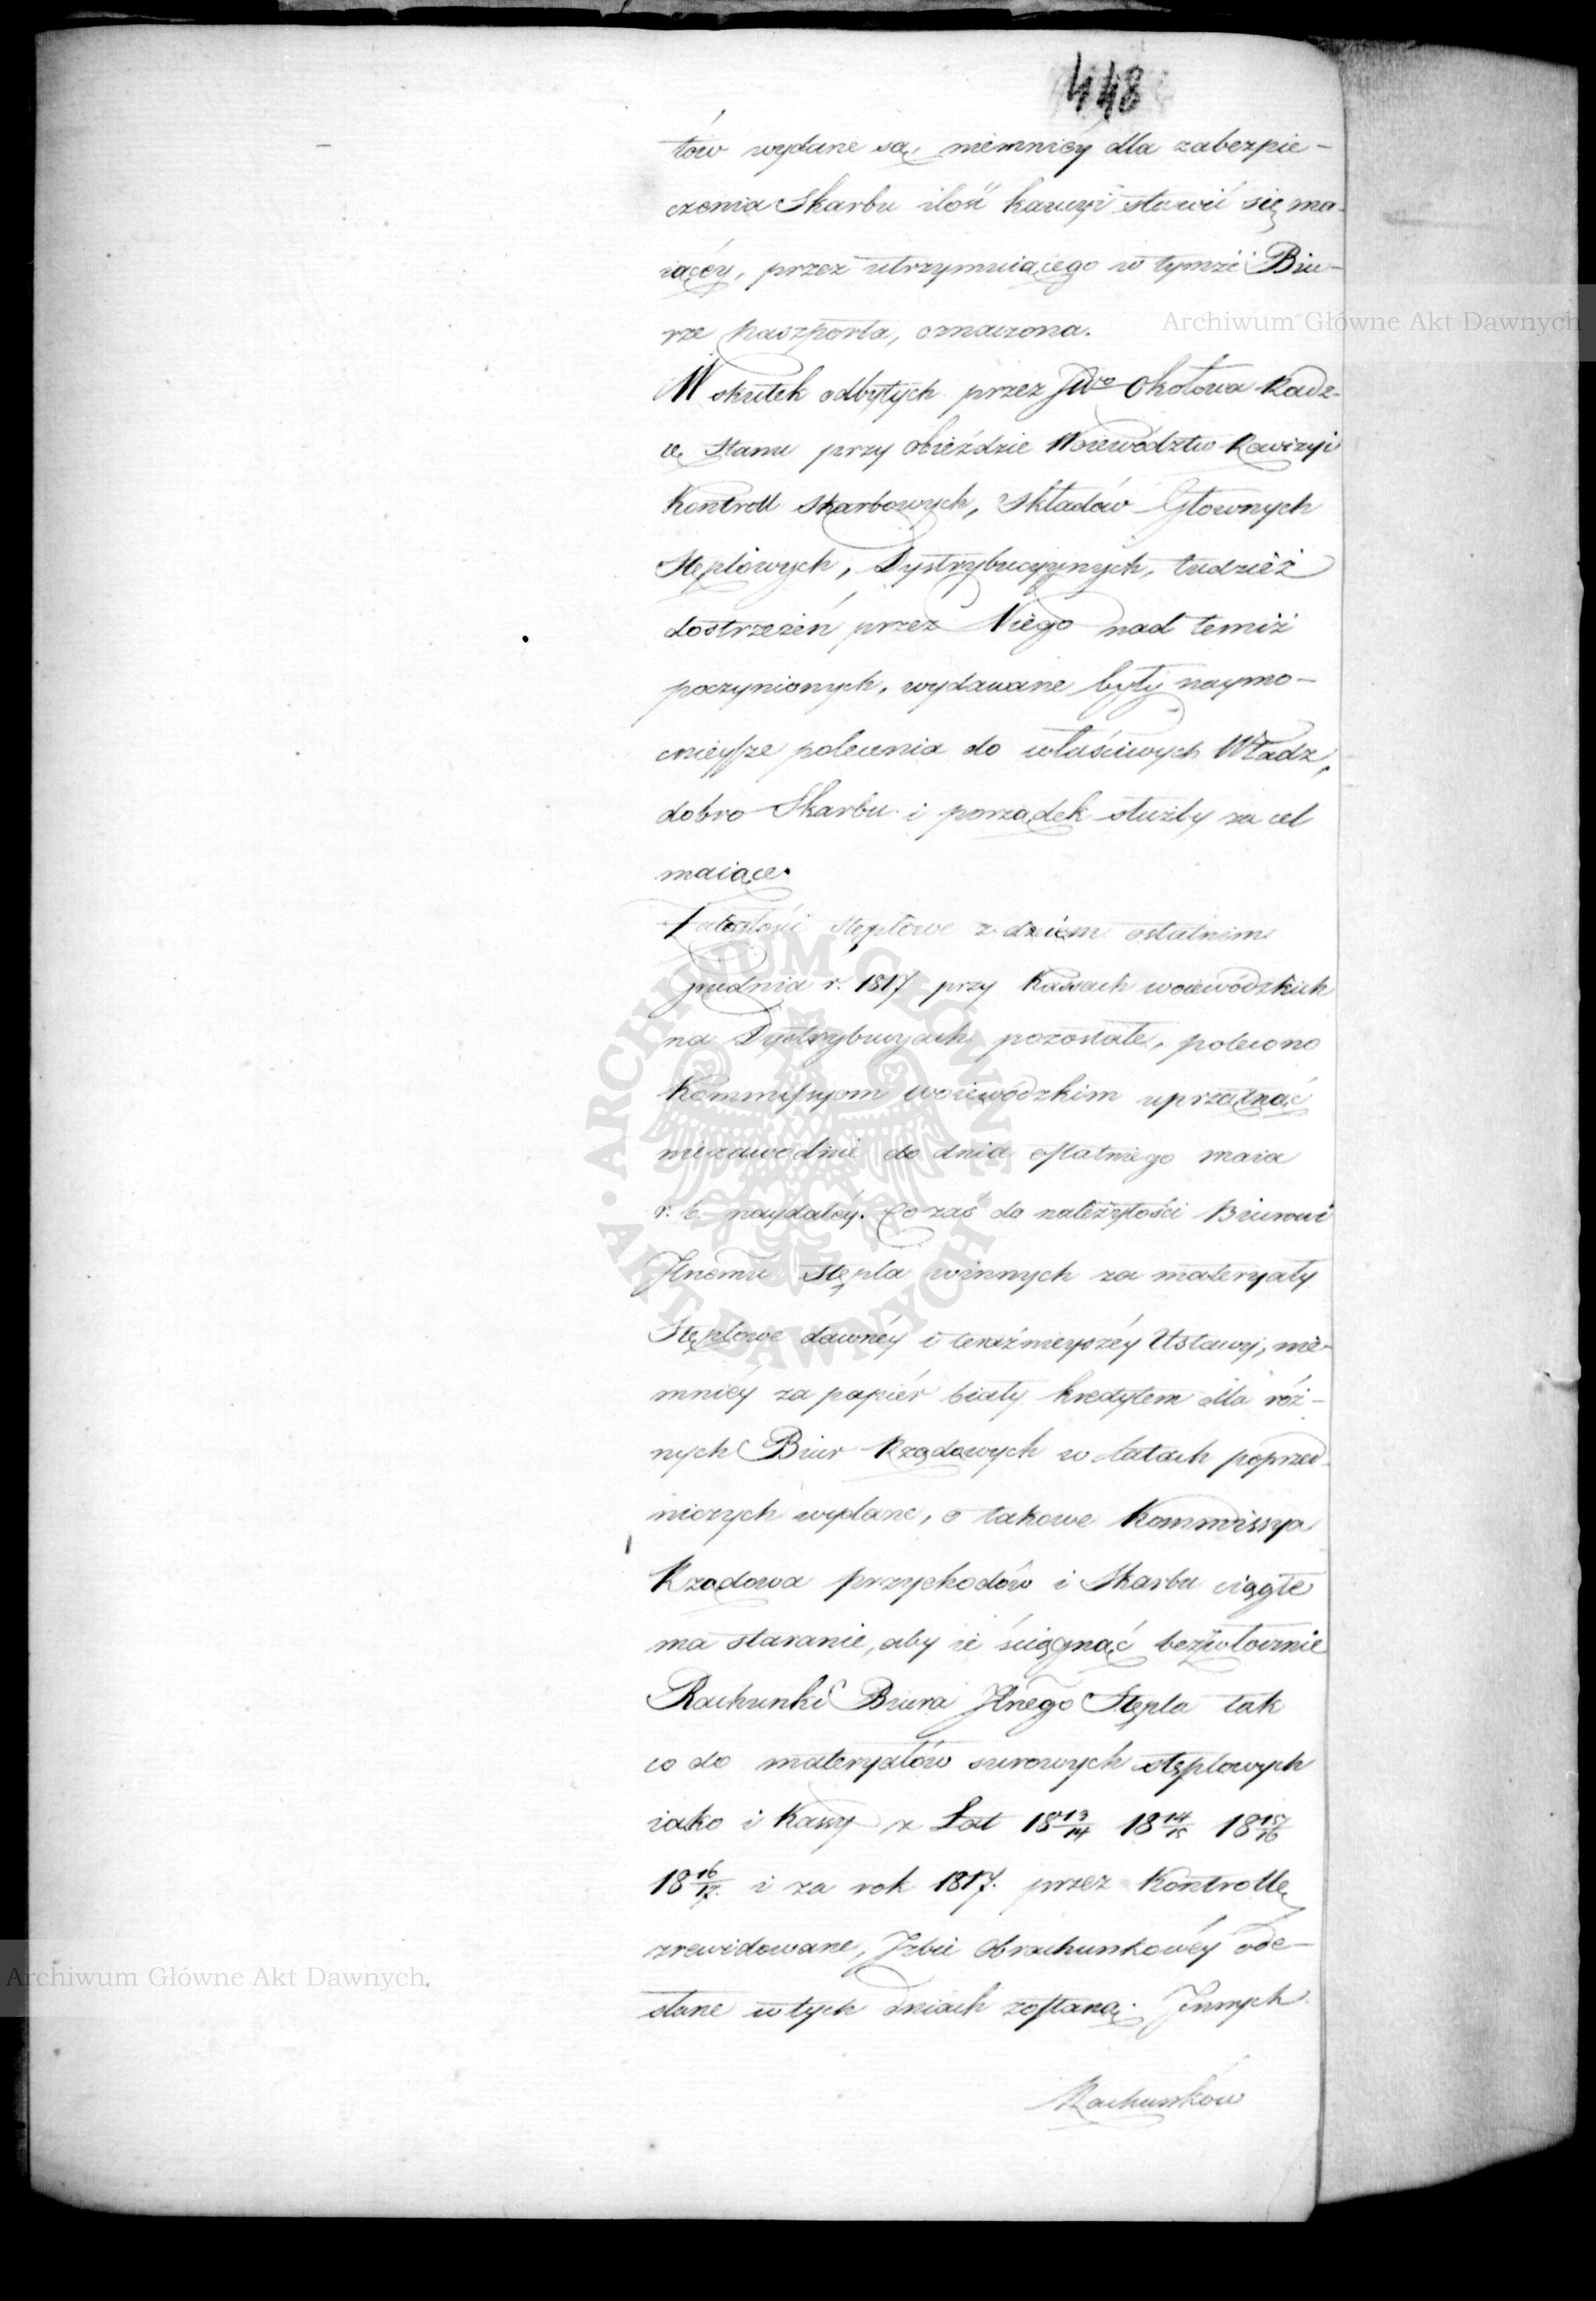 448
tów wydane są, niemniéy dla zabezpie-
czenia Skarbu ilość kaucyi stawić się ma-
iącéy, przez utrzymuiącego w tymże Biu-
rze paszporta, oznaczona.
W skutek odbytych przez JWo Okołowa Radz-
cę Stanu przy obieździe Woiewództw Rewizyi
Kontroll Skarbowych, Składów Głownych
Stęplowych, Dystrybucyynych, tudzież
dostrzeżeń przez Niego nad temiż
poczynionych, wydawane były naymo-
cnieysze polecenia do właściwych Władz,
dobro Skarbu i porządek służby za cel
maiące.
Zaległości stęplowe z dniem ostatnim
grudnia r. 1817 przy Kassach woiewódzkich
na Dystrybucyach pozostałe, polecono
Kommissyom woiewódzkim uprzątnąć
niezawodnie do dnia ostatniego maia
r. b. naydaléy. Co zaś do należytości Biurowi
Jlnemu Stępla winnych za materyały
Stęplowe dawnéy i teraźnieyszéy Ustawy, nie-
mniéy za papiér biały kredytem dla róż-
nych Biur Rządowych w latach poprzed-
niczych wydane, o takowe Kommissya
Rządowa przychodów i Skarbu ciągłe
ma staranie, aby ie ściągnąć bezzwłocznie
Rachunki Biura Jlnego Stępla tak
co do materyałów surowych stęplowych
iako i Kassy z Lat 18 13/14 18 14/15 18 15/16
18 16/17. i za rok 1817. przez Kontrollę
zrewidowane, Jzbie Obrachunkowéy ode-
słane w tych dniach zostaną. Jnnych
Rachunków
Archiwum Główne Akt Dawnych
ARCHIWUM GŁÓWNE • AKT DAWNYCH •
Archiwum Główne Akt Dawnych